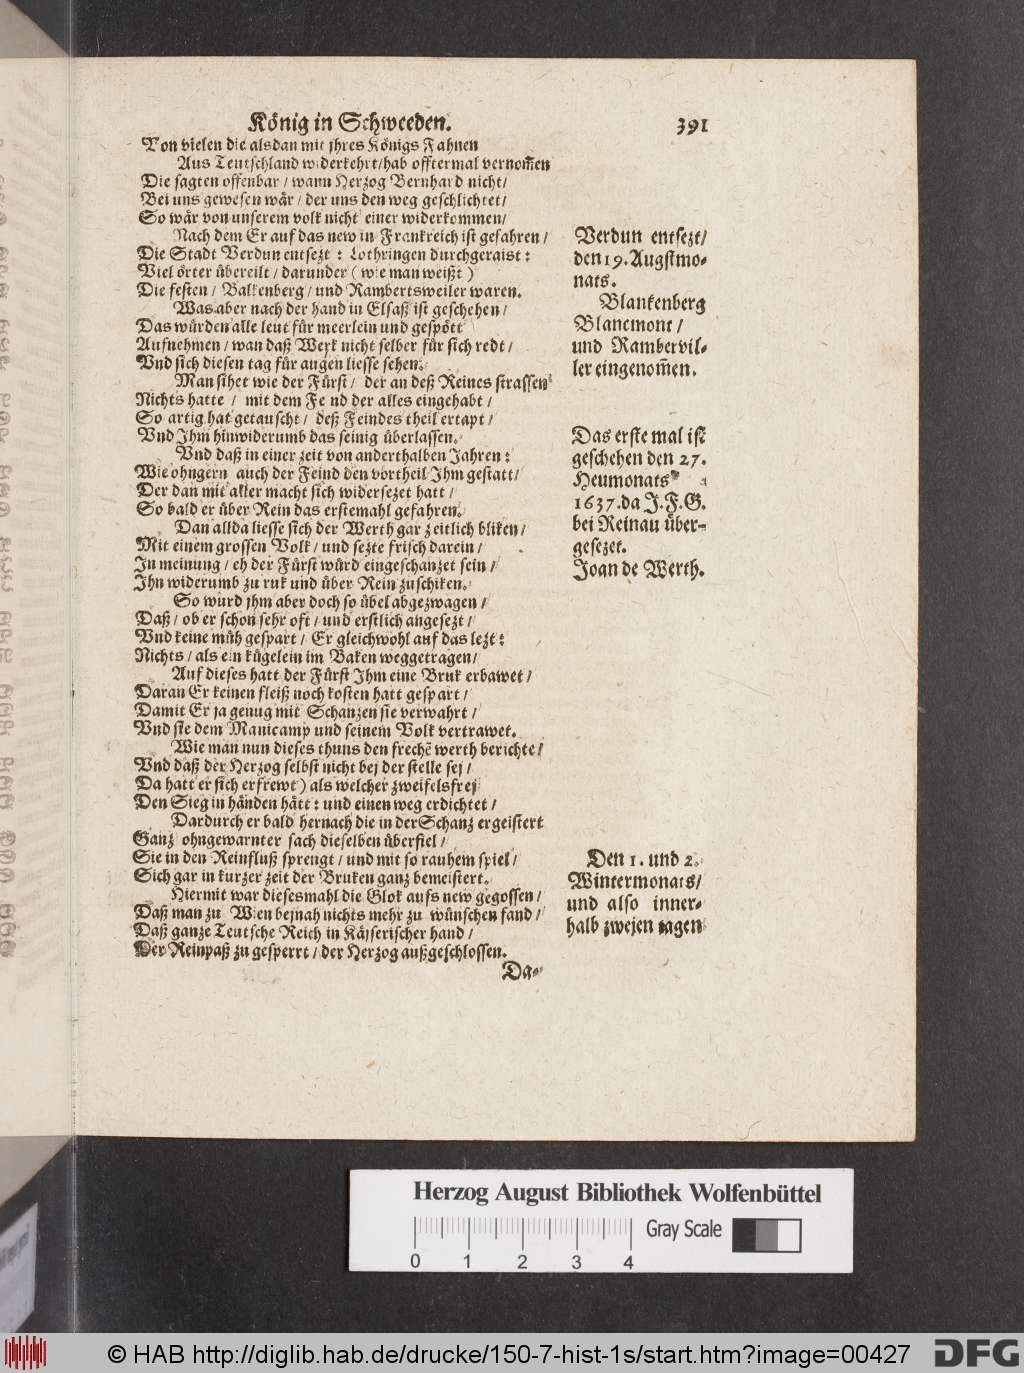 König in Schweeden. 391
Von vielen die alsdan mit jhres Königs Fahnen
Aus Teutschland widerkehrt/hab offtermal vernom̃en
Die sagten offenbar / wann Herzog Bernhard nicht/
Bei uns gewesen wär / der uns den weg geschlichtet/
So wär von unserem volk nicht einer widerkommen/
Nach dem Er auf das new in Frankreich ist gefahren /
Die Stadt Verdun entsezt : Lothringen durchgeraist :
Viel örter übereilt / darunder ( wie man weißt )
Die festen / Balkenberg / und Rambertsweiler waren.
Was aber nach der hand in Elsaß ist geschehen /
Das würden alle leut für meerlein und gespött
Aufnehmen / wan daß Werk nicht selber für sich redt /
Vnd sich diesen tag für augen liesse sehen.
Man sihet wie der Fürst / der an deß Reines strassen
Nichts hatte / mit dem Feind der alles eingehabt /
So artig hat getauscht / deß Feindes theil ertapt /
Vnd Ihm hinwiderumb das seinig überlassen.
Vnd daß in einer zeit von anderthalben Jahren :
Wie ohngern auch der Feind den vortheil Ihm gestatt/
Der dan mit aller macht sich widersezet hatt /
So bald er über Rein das erstemahl gefahren.
Dan allda liesse sich der Werth gar zeitlich bliken /
Mit einem grossen Volk / und sezte frisch darein /
In meinung / eh der Fürst würd eingeschanzet sein /
Ihn widerumb zu ruk und über Rein zuschiken.
So wurd jhm aber doch so übel abgezwagen /
Daß / ob er schon sehr oft / und erstlich angesezt /
Vnd keine müh gespart / Er gleichwohl auf das lezt :
Nichts / als ein kügelein im Baken weggetragen/
Auf dieses hatt der Fürst Ihm eine Bruk erbawet /
Daran Er keinen fleiß noch kosten hatt gespart /
Damit Er ja genug mit Schanzen sie verwahrt /
Vnd sie dem Manicamp und seinem Volk vertrawet.
Wie man nun dieses thuns den frechẽ werth berichte/
Vnd daß der Herzog selbst nicht bej der stelle sej /
Da hatt er sich erfrewt) als welcher zweifelsfrej
Den Sieg in händen hätt : und einen weg erdichtet /
Dardurch er bald hernach die in der Schanz ergeistert
Ganz ohngewarnter sach dieselben überfiel /
Sie in den Reinfluß sprengt / und mit so rauhem spiel /
Sich gar in kurzer zeit der Bruken ganz bemeistert.
Hiermit war diesesmahl die Glok aufs new gegossen /
Daß man zu Wien bejnah nichts mehr zu wünschen fand /
Daß ganze Teutsche Reich in Käjserischer hand /
Der Reinpaß zu gesperrt / der Herzog außgeschlossen.
Da-
Verdun entsezt/
den 19. Augstmo-
nats.
Blankenberg
Blancmont /
und Rambervil-
ler eingenom̃en.
Das erste mal ist
geschehen den 27.
Heumonats
1637. da J. F. G.
bei Reinau über-
gesezet.
Joan de Werth.
Den 1. und 2.
Wintermonats/
und also inner-
halb zwejen tagen
Herzog August Bibliothek Wolfenbüttel
0 1 2 3 4
Gray Scale
© HAB http://diglib.hab.de/drucke/150-7-hist-1s/start.htm?image=00427
DFG